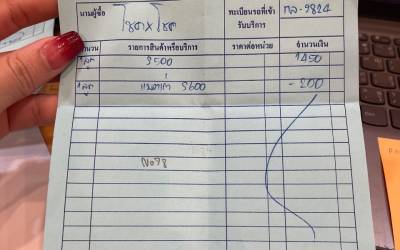 นามผู้ซื้อ โชคxโชค ทะเบียนรถที่เข้ารับบริการ กล-9824
จำนวน รายการสินค้าหรือบริการ ราคาต่อหน่วย จำนวนเงิน
1ลูก 3500 1450
1ลูก S600 -200
No98